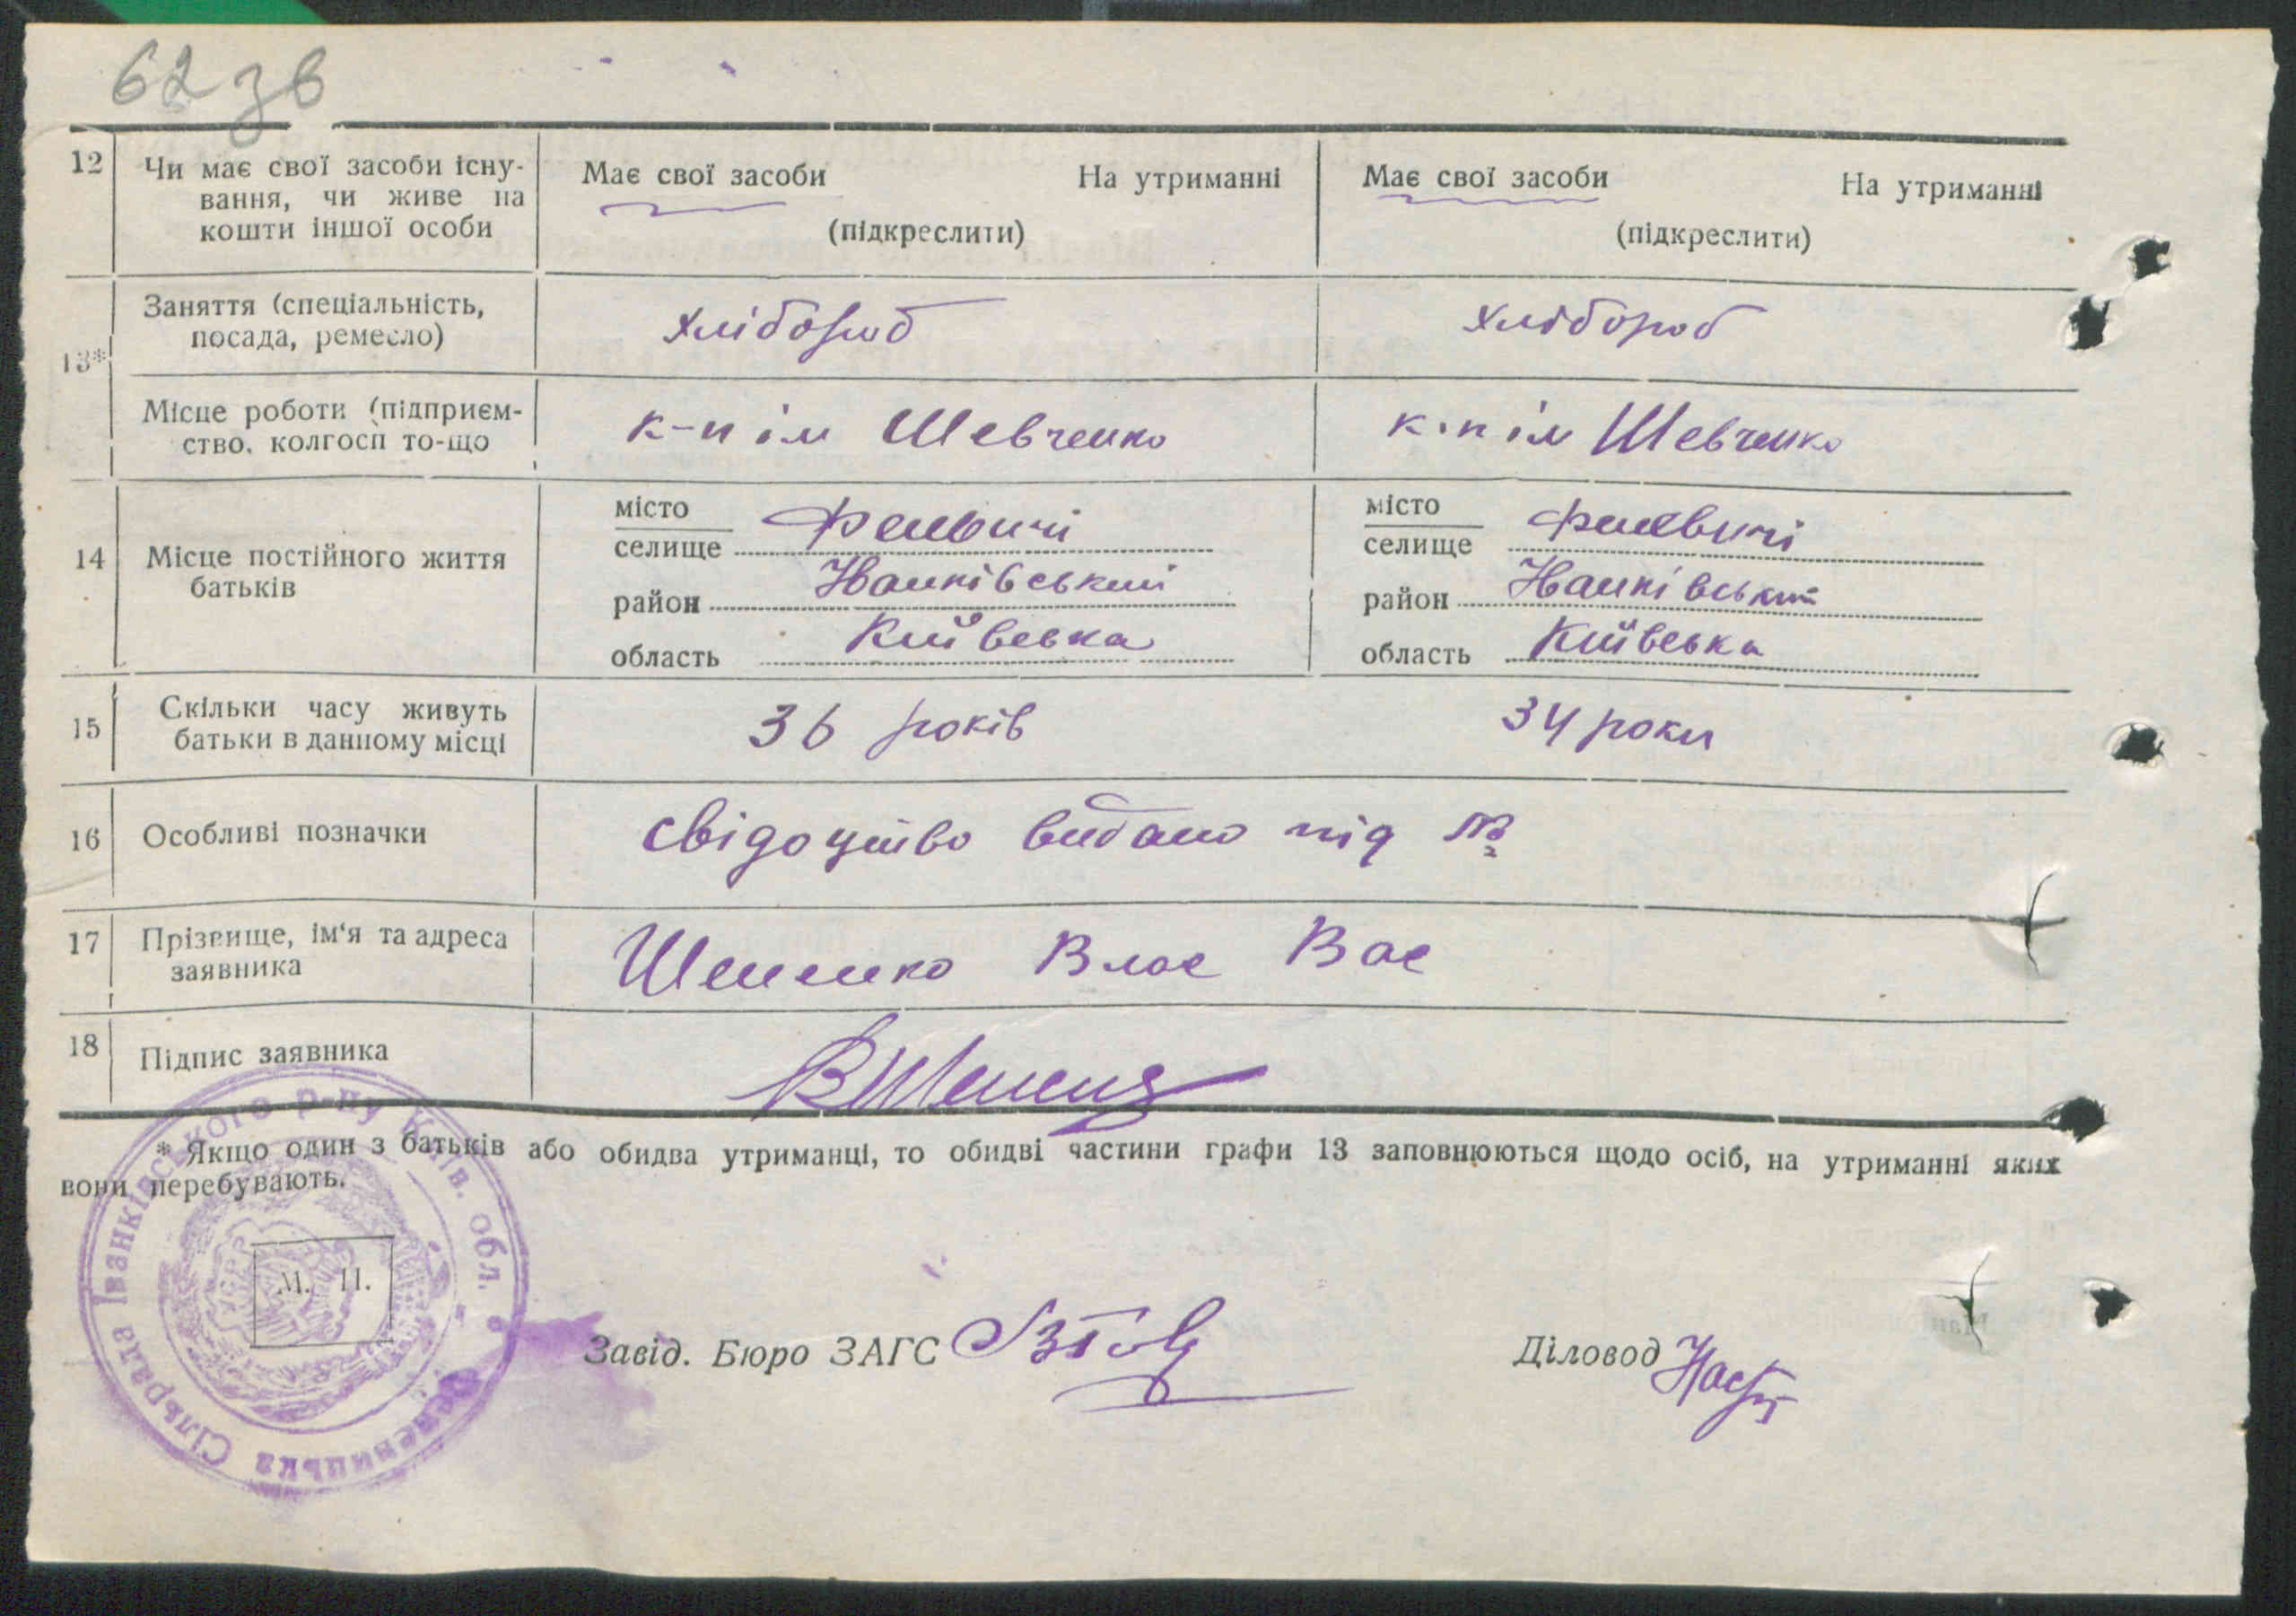 62 зв
12 Чи має свої засоби існу-
вання, чи живе на
кошти іншої особи
Має свої засоби На утриманні
(підкреслити)
Має свої засоби На утриманні
(підкреслити)
13*
Заняття (спеціальність,
посада, ремесло)
хлібороб
хлібороб
Місце роботи (підприєм-
ство, колгосп то-що
к-п ім Шевченко
к-п ім Шевченко
14 Місце постійного життя
батьків
місто
селище Феневичі
район Іванківський
область Київська
місто
селище Феневичі
район Іванківський
область Київська
15 Скільки часу живуть
батьки в данному місці
36 років
34 роки
16 Особливі позначки
свідоцтво видано під №
17 Прізвище, ім‘я та адреса
заявника
Влас Вас
18 Підпис заявника
* Якщо один з батьків або обидва утриманці, то обидві частини графи 13 заповнюються щодо осіб, на утриманні яких
вони перебувають.
Сільрада Іванківського р-ну Київ. обл.
УСРР
М. П.
Завід. Бюро ЗАГС
Діловод